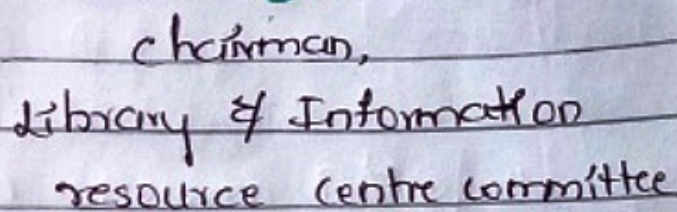 chairman,
Library & Information
resource centre committee